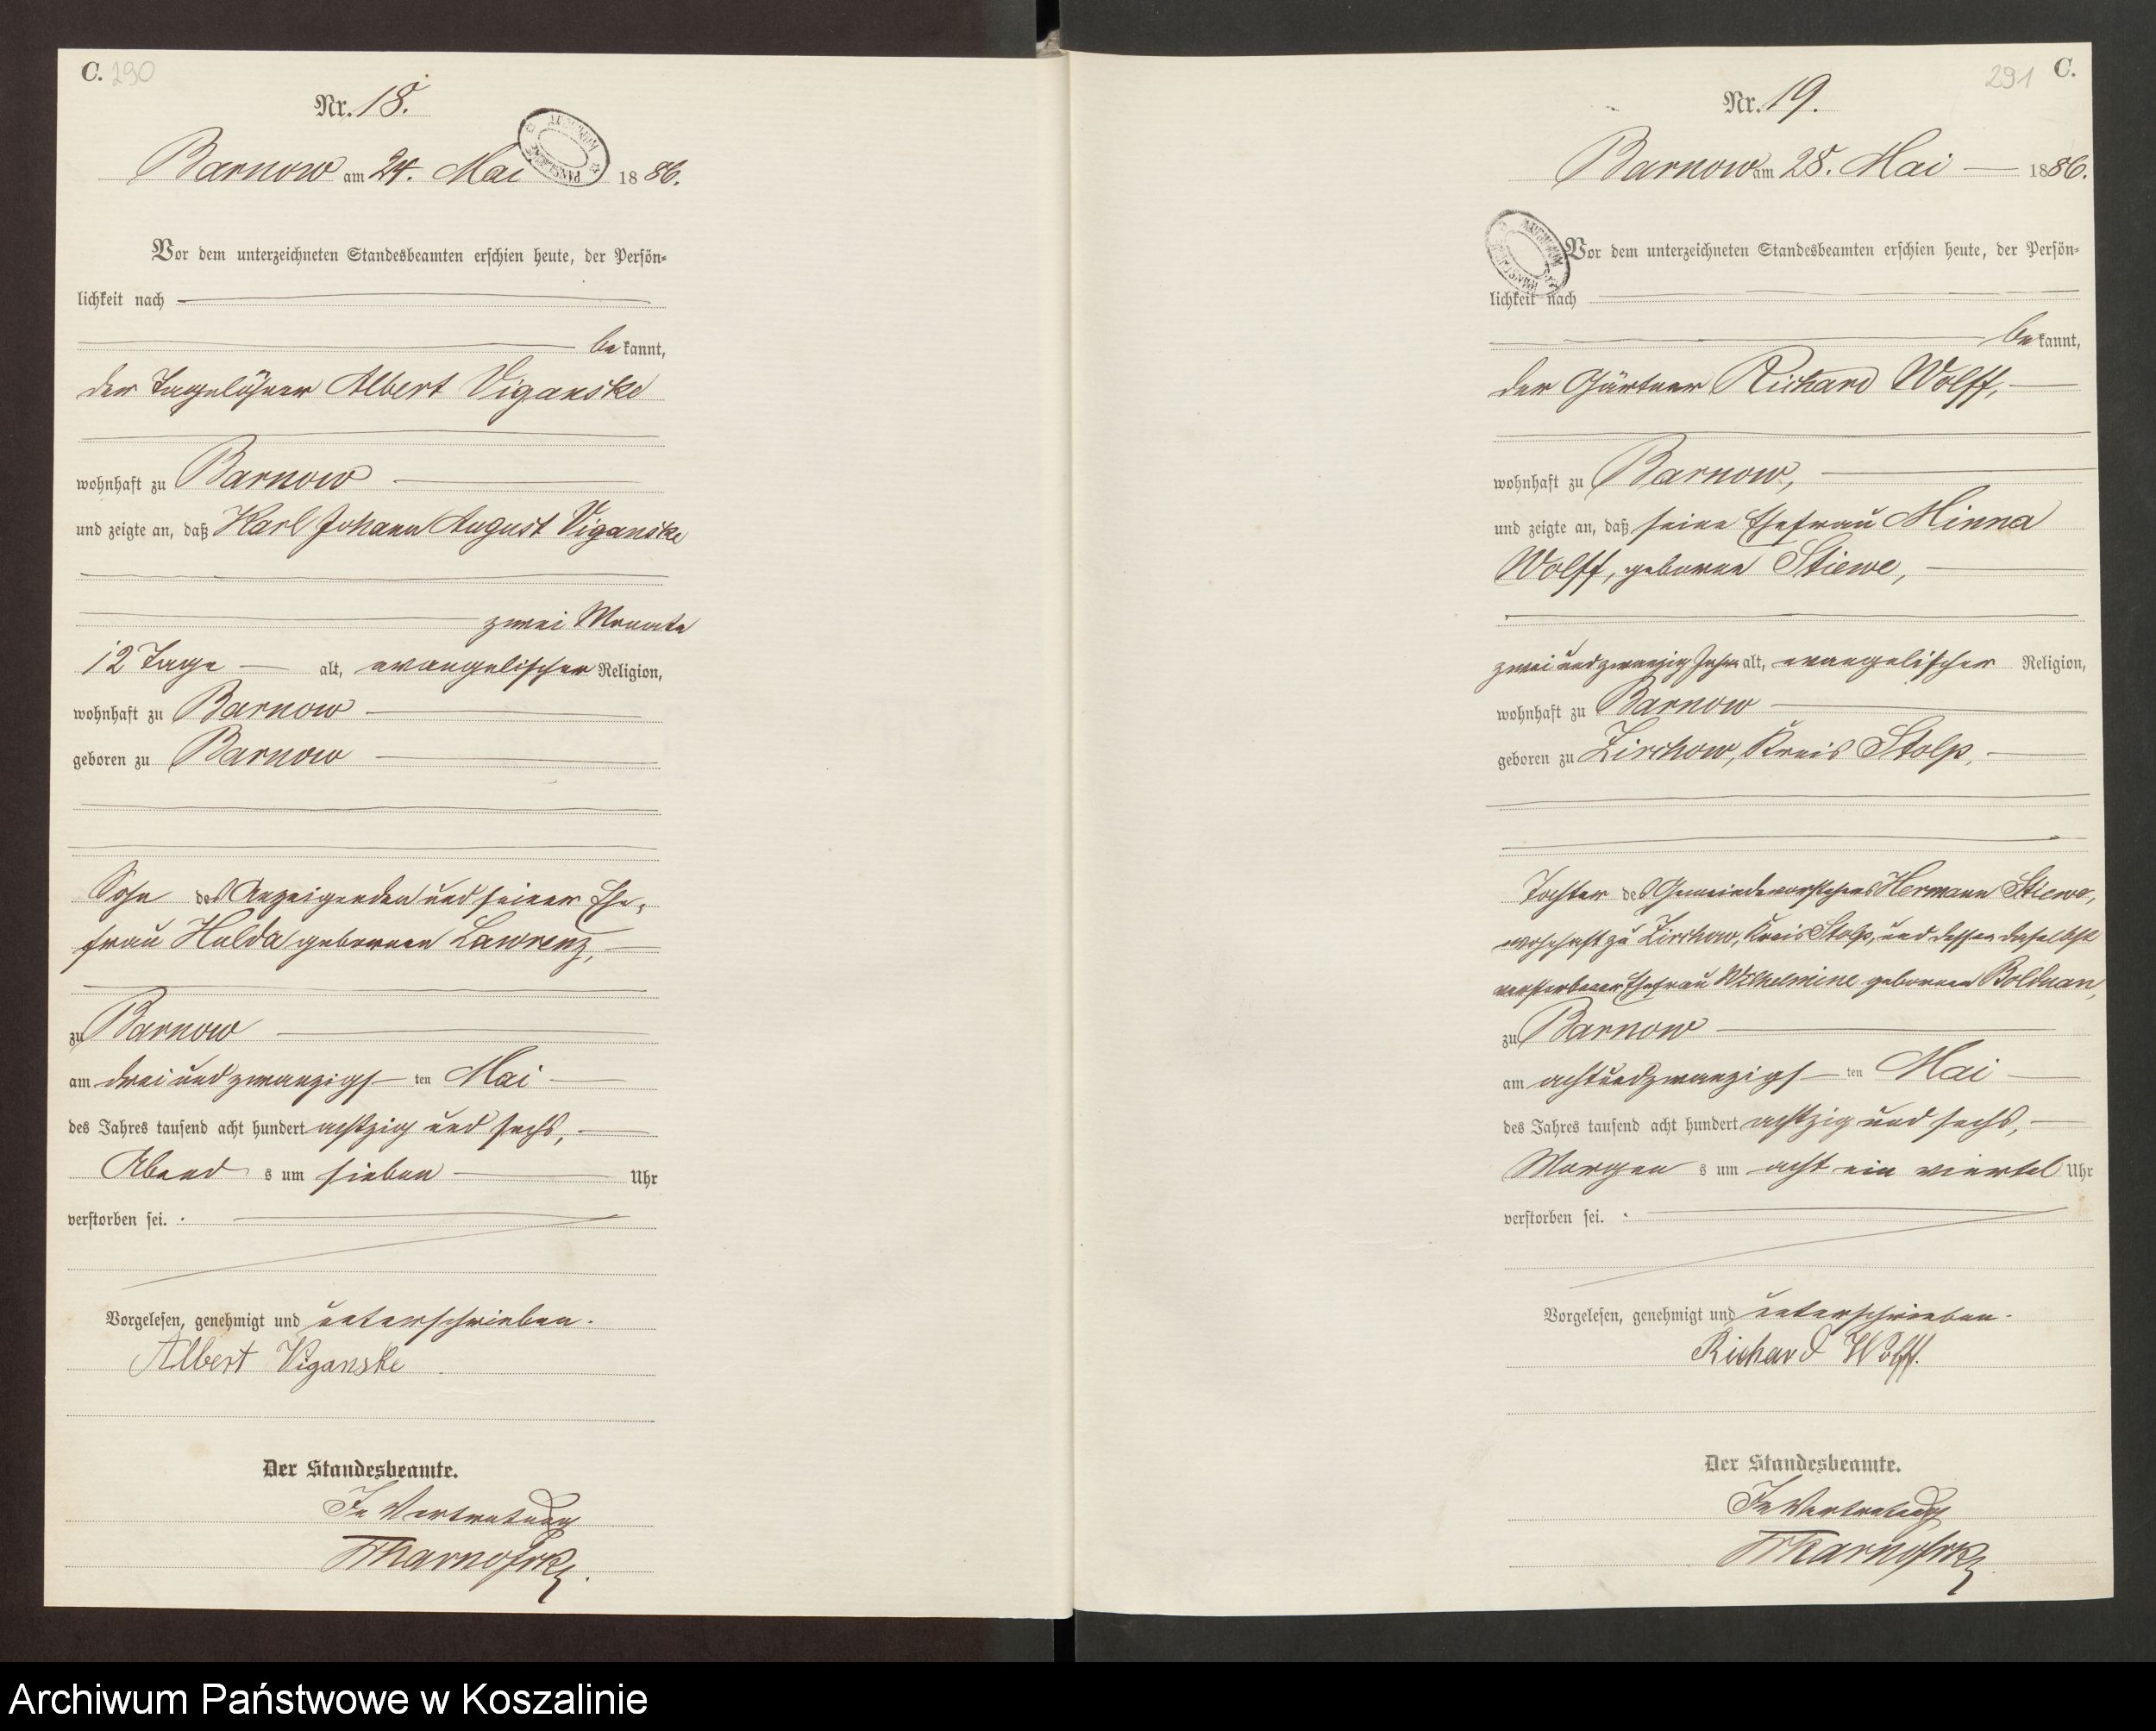 C. 290
Nr. 18.
Barnow am 24. Mai 1886.
Vor dem unterzeichneten Standesbeamten erschien heute, der Persön-
lichkeit nach
bekannt,
der Tagelöhner Albert Viganske
wohnhaft zu Barnow
und zeigte an, daß Karl Johann August Viganske
zwei Monate
12 Tage alt, evangelischer Religion,
wohnhaft zu Barnow
geboren zu Barnow
Sohn des Anzeigenden und seiner Ehe-
frau Hulda geborenen Lawrenz,
zu Barnow
am drei und zwanzigsten Mai
des Jahres tausend acht hundert achtzig und sechs,
Abends um sieben Uhr
verstorben sei.
Vorgelesen, genehmigt und unterschrieben.
Albert Viganske
Der Standesbeamte.
In Vertretung
291 C.
Nr. 19.
Barnow am 28. Mai 1886.
Vor dem unterzeichneten Standesbeamten erschien heute, der Persön-
lichkeit nach
bekannt,
der Gärtner Richard Wolff,
wohnhaft zu Barnow,
und zeigte an, daß seine Ehefrau Minna
Wolff, geborne Stiewe,
zwei und zwanzig Jahr alt, evangelischer Religion,
wohnhaft zu Barnow
geboren zu Zirchow, Kreis Stolp,
Tochter des Gemeindevorstehers Hermann Stiewe,
wohnhaft zu Zirchow, Kreis Stolp, und dessen daselbst
verstorbener Ehefrau Wilhelmine geborenen Bolduan,
zu Barnow
am achtundzwanzigsten Mai
des Jahres tausend acht hundert achtzig und sechs,
Morgens um acht ein viertel Uhr
verstorben sei.
Vorgelesen, genehmigt und unterschrieben.
Richard Wolff.
Der Standesbeamte.
In Vertretung
Archiwum Państwowe w Koszalinie